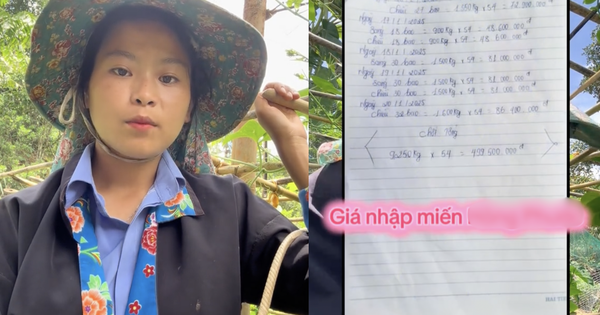 Chiều 27 bao = 1.350kg x 54 = 72.900.000đ
Ngày 17.11.2025
Sáng 18 bao = 900kg x 54 = 48.600.000đ
Chiều 18 bao = 900kg x 54 = 48.600.000đ
Ngày 18.11.2025
Sáng 30 bao = 1.500kg x 54 = 81.000.000đ
Ngày 19.11.2025
Sáng 30 bao = 1.500kg x 54 = 81.000.000đ
Chiều 30 bao = 1.500kg x 54 = 81.000.000đ
Ngày 20.11.2025
Chiều 32 bao = 1.600kg x 54 = 86.400.000đ
Chốt Tổng
9.250kg x 54 = 499.500.000đ
Giá nhập miến